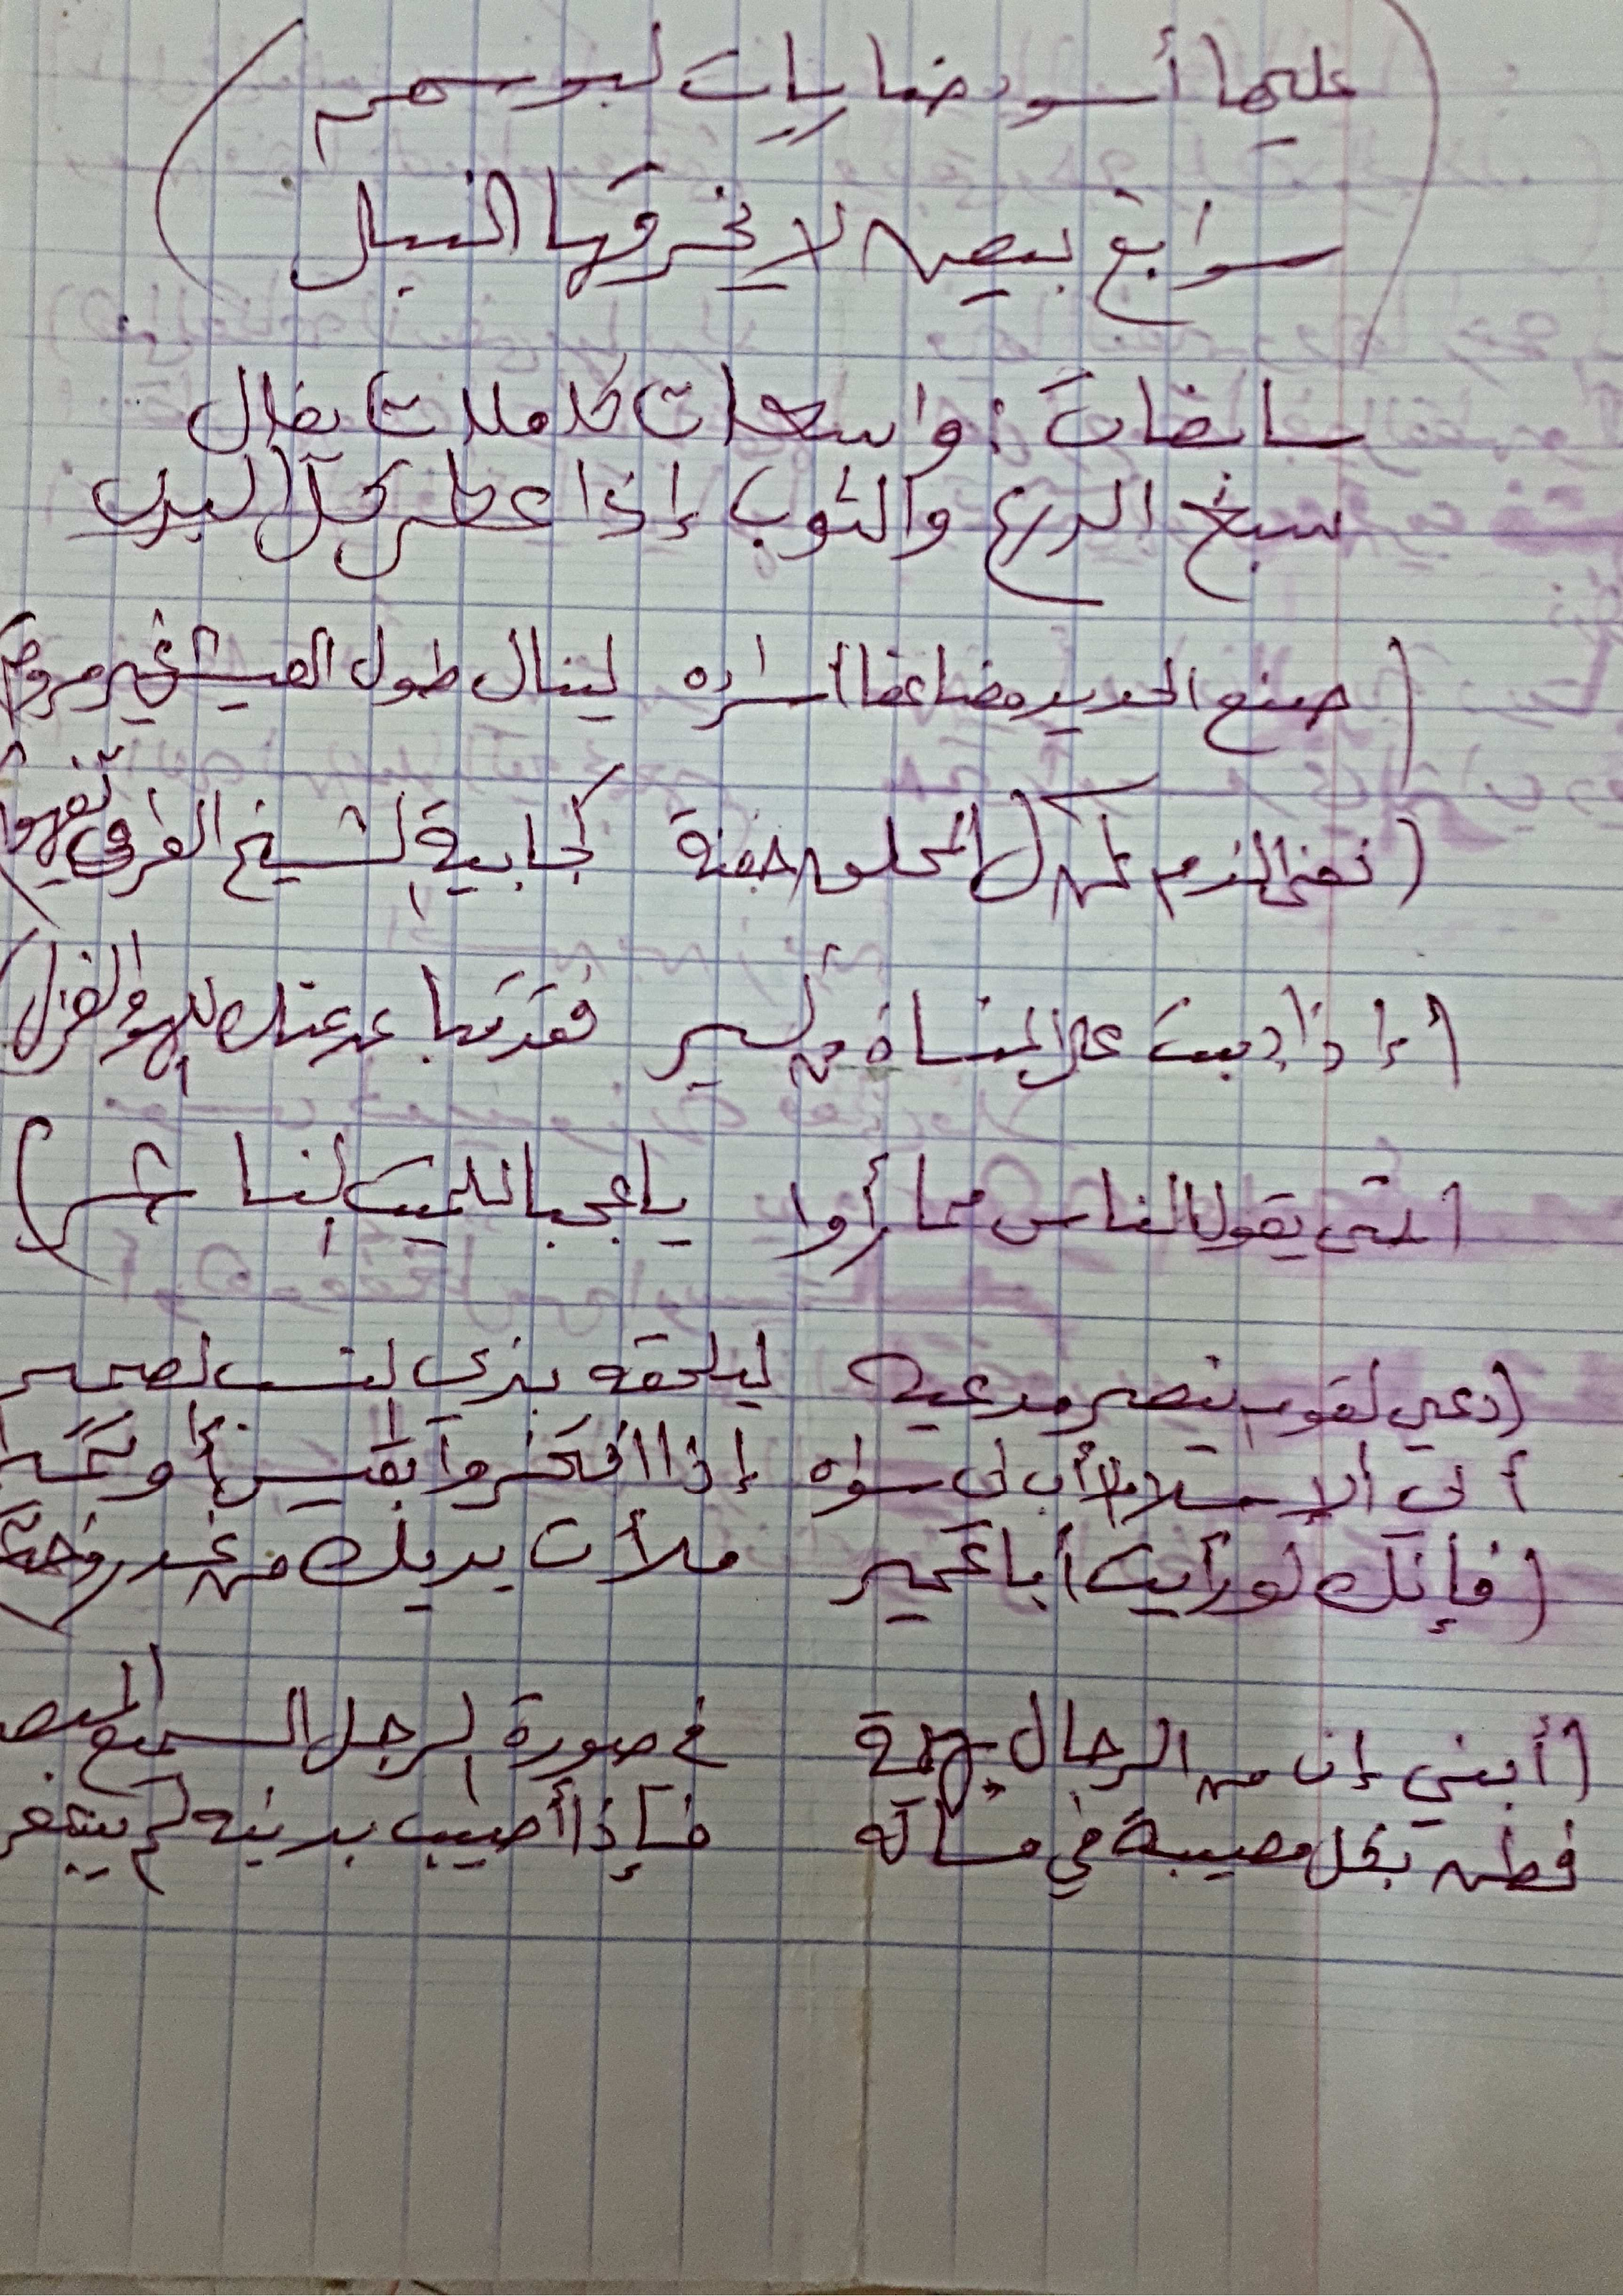 (عليها أسود ضاريات لبوسهم
سوابغ بيض لا يخرقها النبل)
سابغات : واسعات كاملات يقال
سبغ الدرع والثوب إذا غطى كل البدن
(صنع الحديد مضاعفا أسراده لينال طول العيش غير مروم)
(نفى الذم عن آل المحلق جفنة كجابية الشيخ العراقي تفهق)
(إذا دببت على المنساة من كبر فقد تباعد عنك اللهو والغزل)
(حتى يقول الناس مما رأوا يا عجبا للميت الناشر)
(دعي القوم ينصر مدعيه ليلحقه بذي النسب الصميم
أبي الإسلام لا أب لي سواه إذا افتخروا بقيس أو تميم
(فإنك لو رأيت أبا عمير ملأت يديك من غدر وختر)
(أبني إن من الرجال بهيمة في صورة الرجل السميع المبصر
فطن بكل مصيبة في ماله فإذا أصيب بدينه لم يشعر